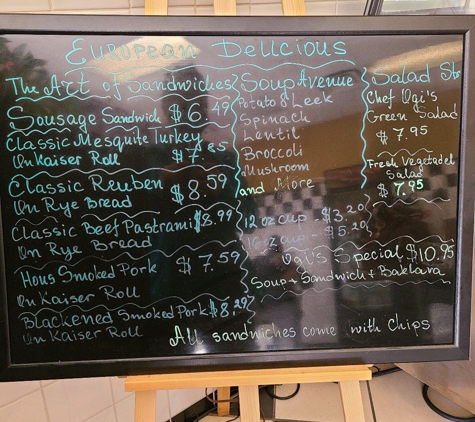 European Delicious
The Art of Sandwiches
Sausage Sandwich $6.49
Classic Mesquite Turkey
On Kaiser Roll $7.
Classic Reuben
On Rye Bread $8.59
Classic Beef Pastrami $8.99
On Rye Bread
Hous Smoked Pork $7.59
On Kaiser Roll
Blackened Smoked Pork $8.29
On Kaiser Roll
Soup Avenue
Potato & Leek
Spinach
Lentil
Broccoli
Mushroom
and More
12 oz cup - $3.20
16 oz cup - $5.20
Salad
Chef Ogi's
Green Salad
$7.95
Fresh Vegetabel
Salad
$7.95
Ogi's Special $10.95
Soup + Sandwich + Baklava
All sandwiches come with chips